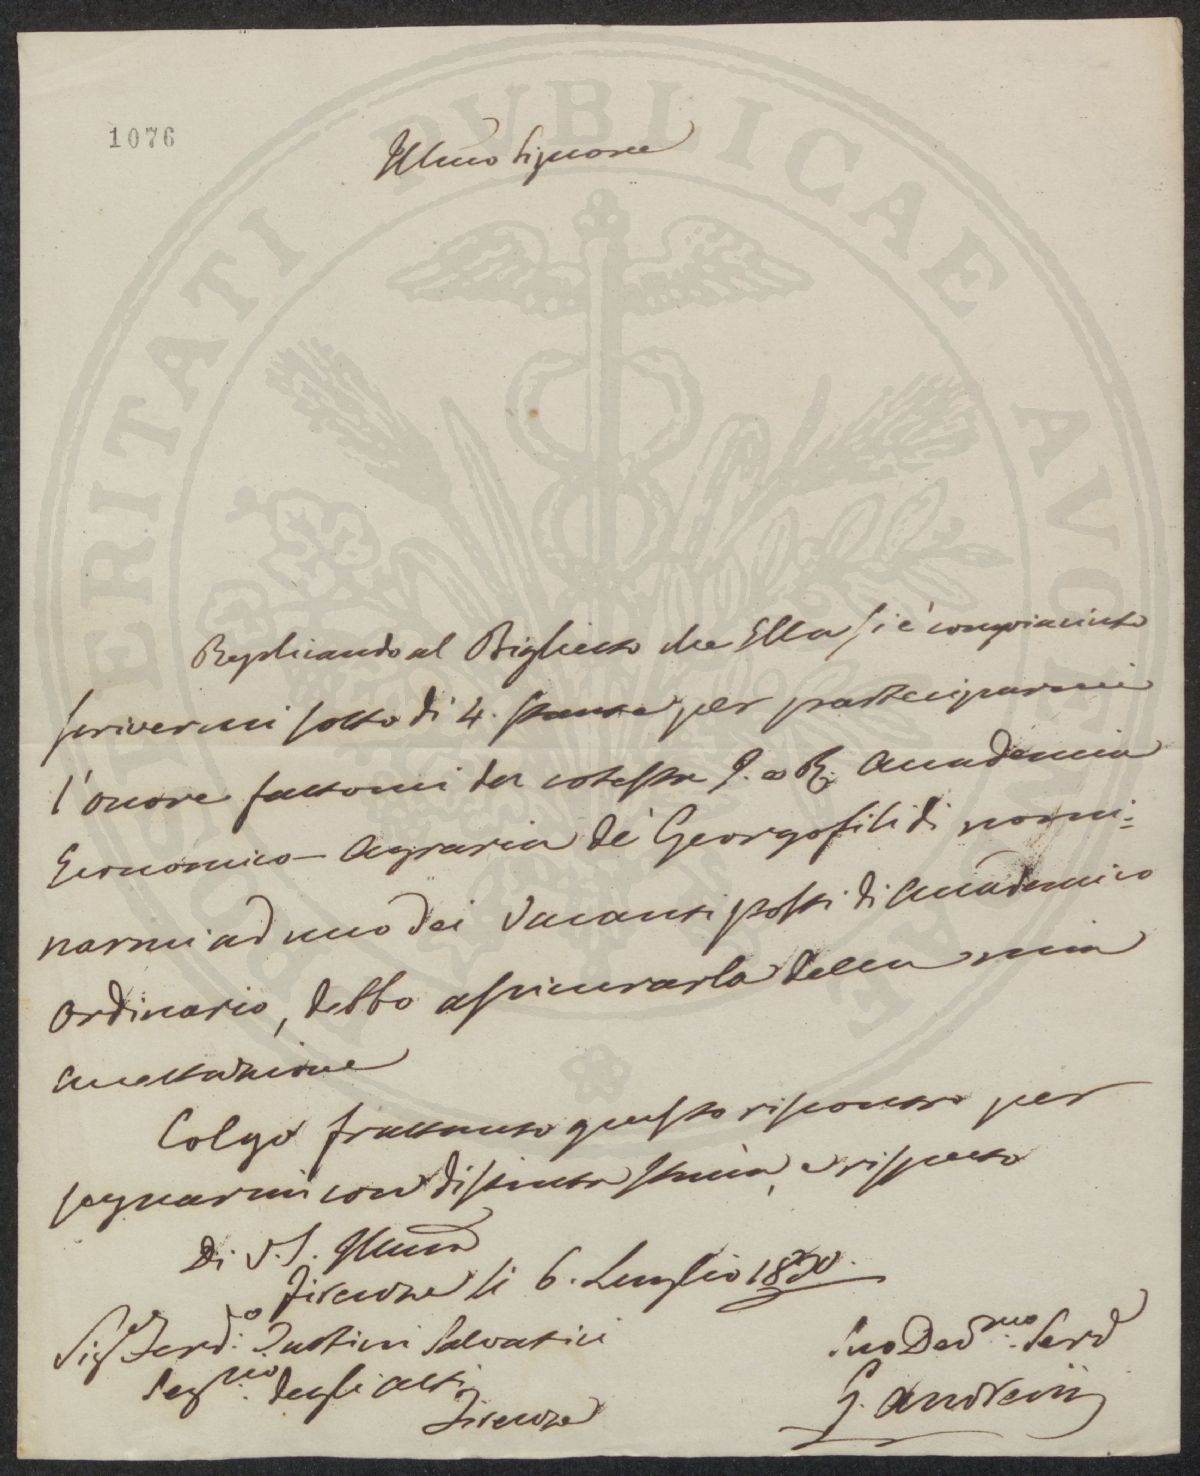 1076
Illmo Signore
Replicando al Biglietto che Ella si è compiaciuto
scrivermi sotto dì 4. stante per parteciparmi
l'onore fattomi da cotesta I. e R. Accademia
Economico-Agraria de' Georgofili di nomi=
narmi ad uno dei vacanti posti di Accademico
Ordinario, debbo assicurarla della mia
accettazione
Colgo frattanto questo riscontro per
segnarmi con distinta stima, e rispetto
Di V. S. Illma
Firenze li 6. Luglio 1830.
Sigre Ferdo. Tartini Salvatici
Segrio. degli atti
Firenze
Suo Devmo. Serv
G. Andreini
PUBLICAE